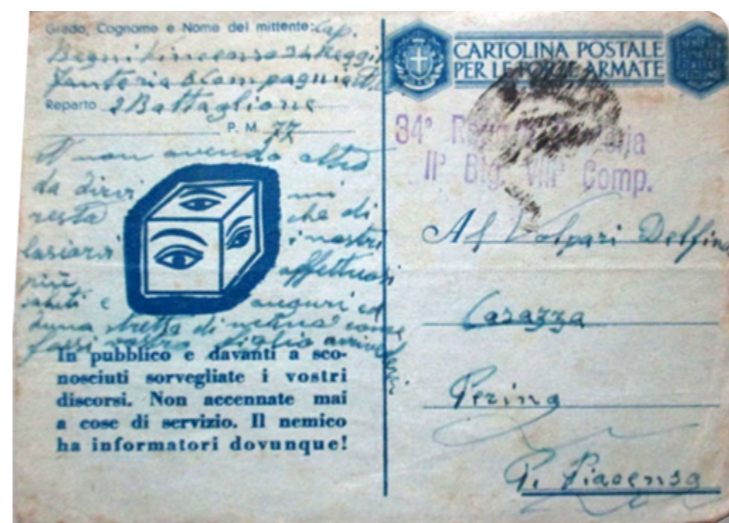 Grado, Cognome e Nome del mittente: Cap.
Begni Vincenzo 34 Reggi
fanteria 8 Compagnia
Reparto 2 Battaglione
P. M. 77
N non avendo altro
da dirvi mi
resta che di
lasiarvi i nostri
più affettuosi
saluti e auguri ed
una stretta di mano come
fossi vostro figlio
In pubblico e davanti a sco-
nosciuti sorvegliate i vostri
discorsi. Non accennate mai
a cose di servizio. Il nemico
ha informatori dovunque!
CARTOLINA POSTALE
PER LE FORZE ARMATE
34°
II° Btg. VIII° Comp.
Al Volpari Delfino
Casazza
Perino
P. Piacenza